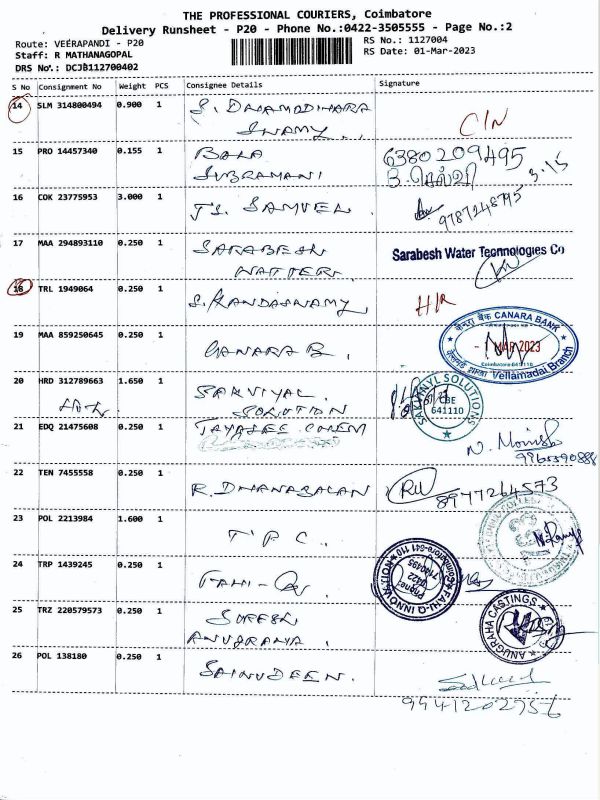 THE PROFESSIONAL COURIERS, Coimbatore
Delivery Runsheet - P20 - Phone No.:0422-3505555 - Page No.:2
Route: VEERAPANDI - P20
Staff: R MATHANAGOPAL
DRS No.: DCJB112700402
RS No.: 1127004
RS Date: 01-Mar-2023
S No Consignment No Weight PCS Consignee Details Signature
14 SLM 314800494 0.900 1 S. DHAMODHARA
SWAMY
CIN
15 PRO 14457340 0.155 1 BALA 6380209495
SUBRAMANI 3.15
16 COK 23775953 3.000 1 T.S. SAMUEL 9787248795
17 MAA 294893110 0.250 1 SARABESH Sarabesh Water Technologies Co
WATTER
18 TRL 1949064 0.250 1 S. KANDASWAMY
19 MAA 859250645 0.250 1 CANARA B.
केनरा बैंक CANARA BANK
1 MAR 2023
Vellamadai Branch
20 HRD 312789663 1.650 1 SAKVIYAL
SOLUTION
SAKVINYL SOLUTIONS
CBE
641110
21 EDQ 21475608 0.250 1
N. Monish
22 TEN 7455558 0.250 1 R. DHANABALAN 8977264573
23 POL 2213984 1.600 1 T P C.
24 TRP 1439245 0.250 1 FAHI-Q
Coimbatore-641 110
Phone:
0422
25 TRZ 220579573 0.250 1 SURESH
ANUGRAHA.
ANUGRAHA CASTINGS
26 POL 138180 0.250 1 SAINUDEEN.
9941202756